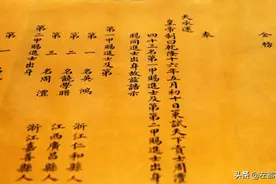 金榜
奉
天承運
皇帝制曰乾隆十六年五月初十日策試天下貢士周
四十三名第一甲賜進士及第第二甲賜進士出身
賜同進士出身故茲誥示
第一甲賜進士及第
第一名吳鴻 浙江仁和縣人
第二名饒學曙 江西廣昌縣人
第三名周澧 浙江嘉善縣人
第二甲賜進士出身
头条 @左都